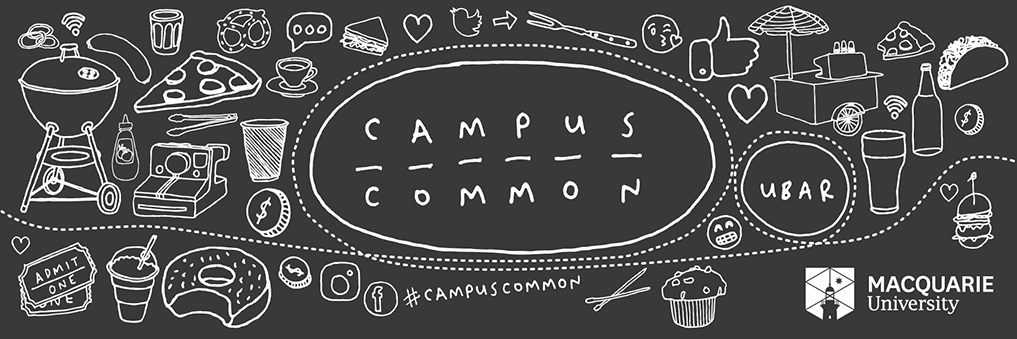 CAMPUS
COMMON
UBAR
ADMIT
ONE
#CAMPUSCOMMON
MACQUARIE
University